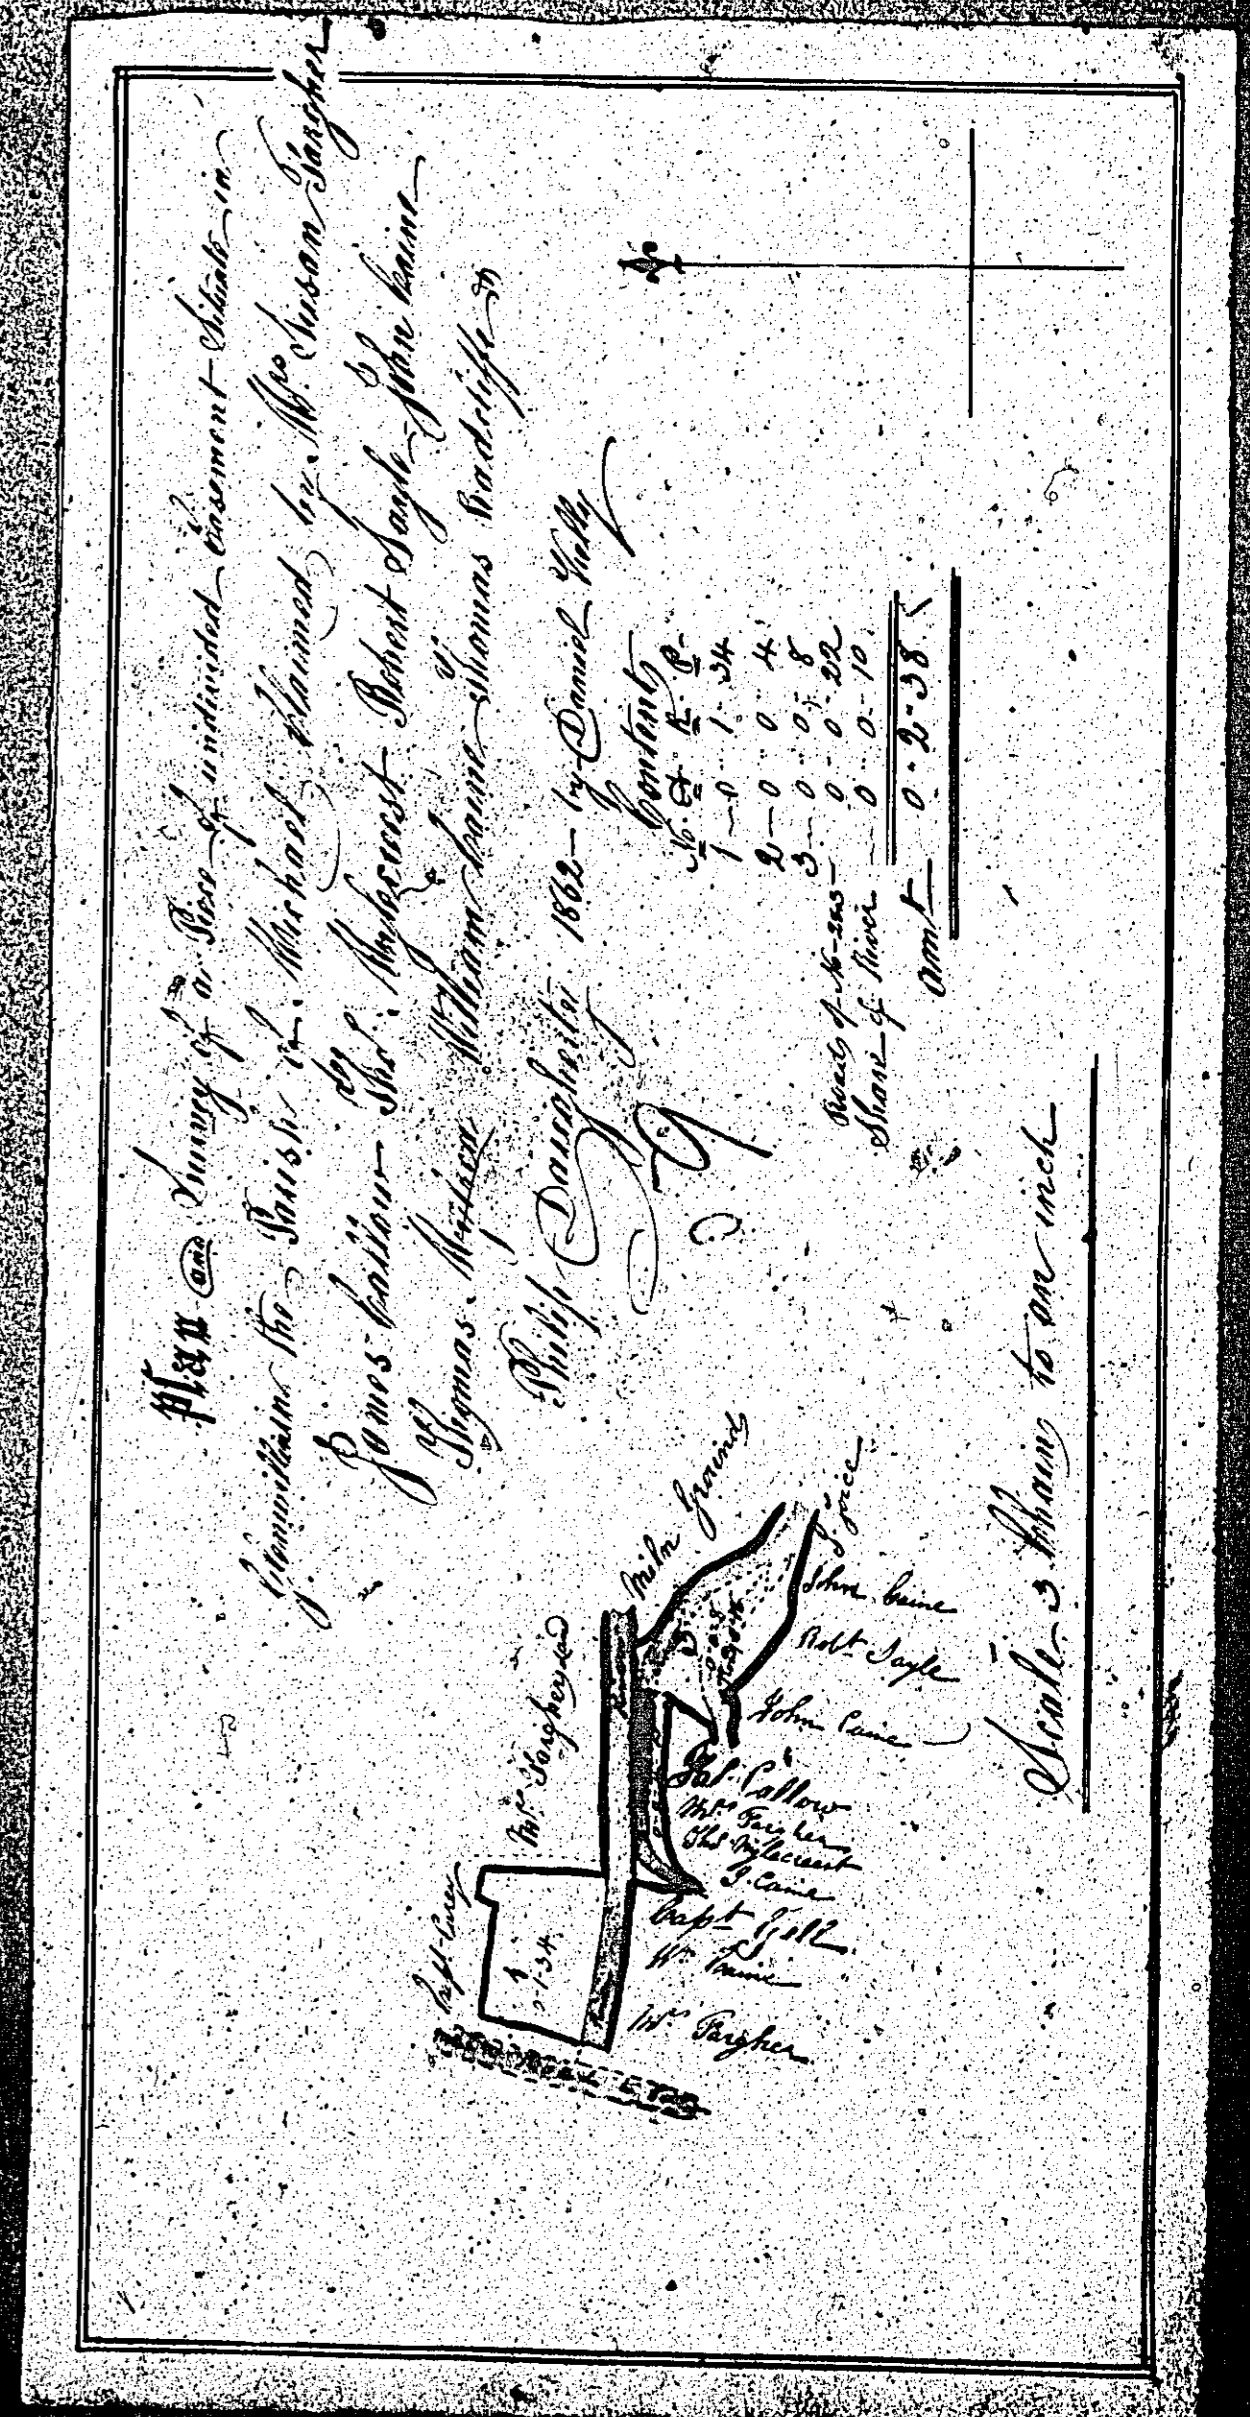 Plan and Survey of a Piece of undivided Easement Situate in
the Parish of Michael Claimed by Mrs Susan Fargher
James Callow Thos. Mylecrest Robert Sayle John Caine
Thomas William Caine Thomas Radcliffe
Philip Daugherty 1862 by Daniel Kelly
Contents
No. A R P
1 - 0 .. 1 . 34
2 - 0 .. 0 .. 4
3 - 0 .. 0 .. 8
Roads of No 2 & 3 - 0 - 0 - 22
Share of River - 0 .. 0 - 10
amt 0 - 2 - 38
Scale 3 Chain to an inch
Mrs Fargher land
Miln Ground
River
1
0-1-34
3
0 0 8
J Joice
John Caine
Robt Sayle
John Caine
Jas. Callow
Mrs Fargher
Thos Mylecreest
J. Caine
Capt
Wm Caine
Mrs Fargher